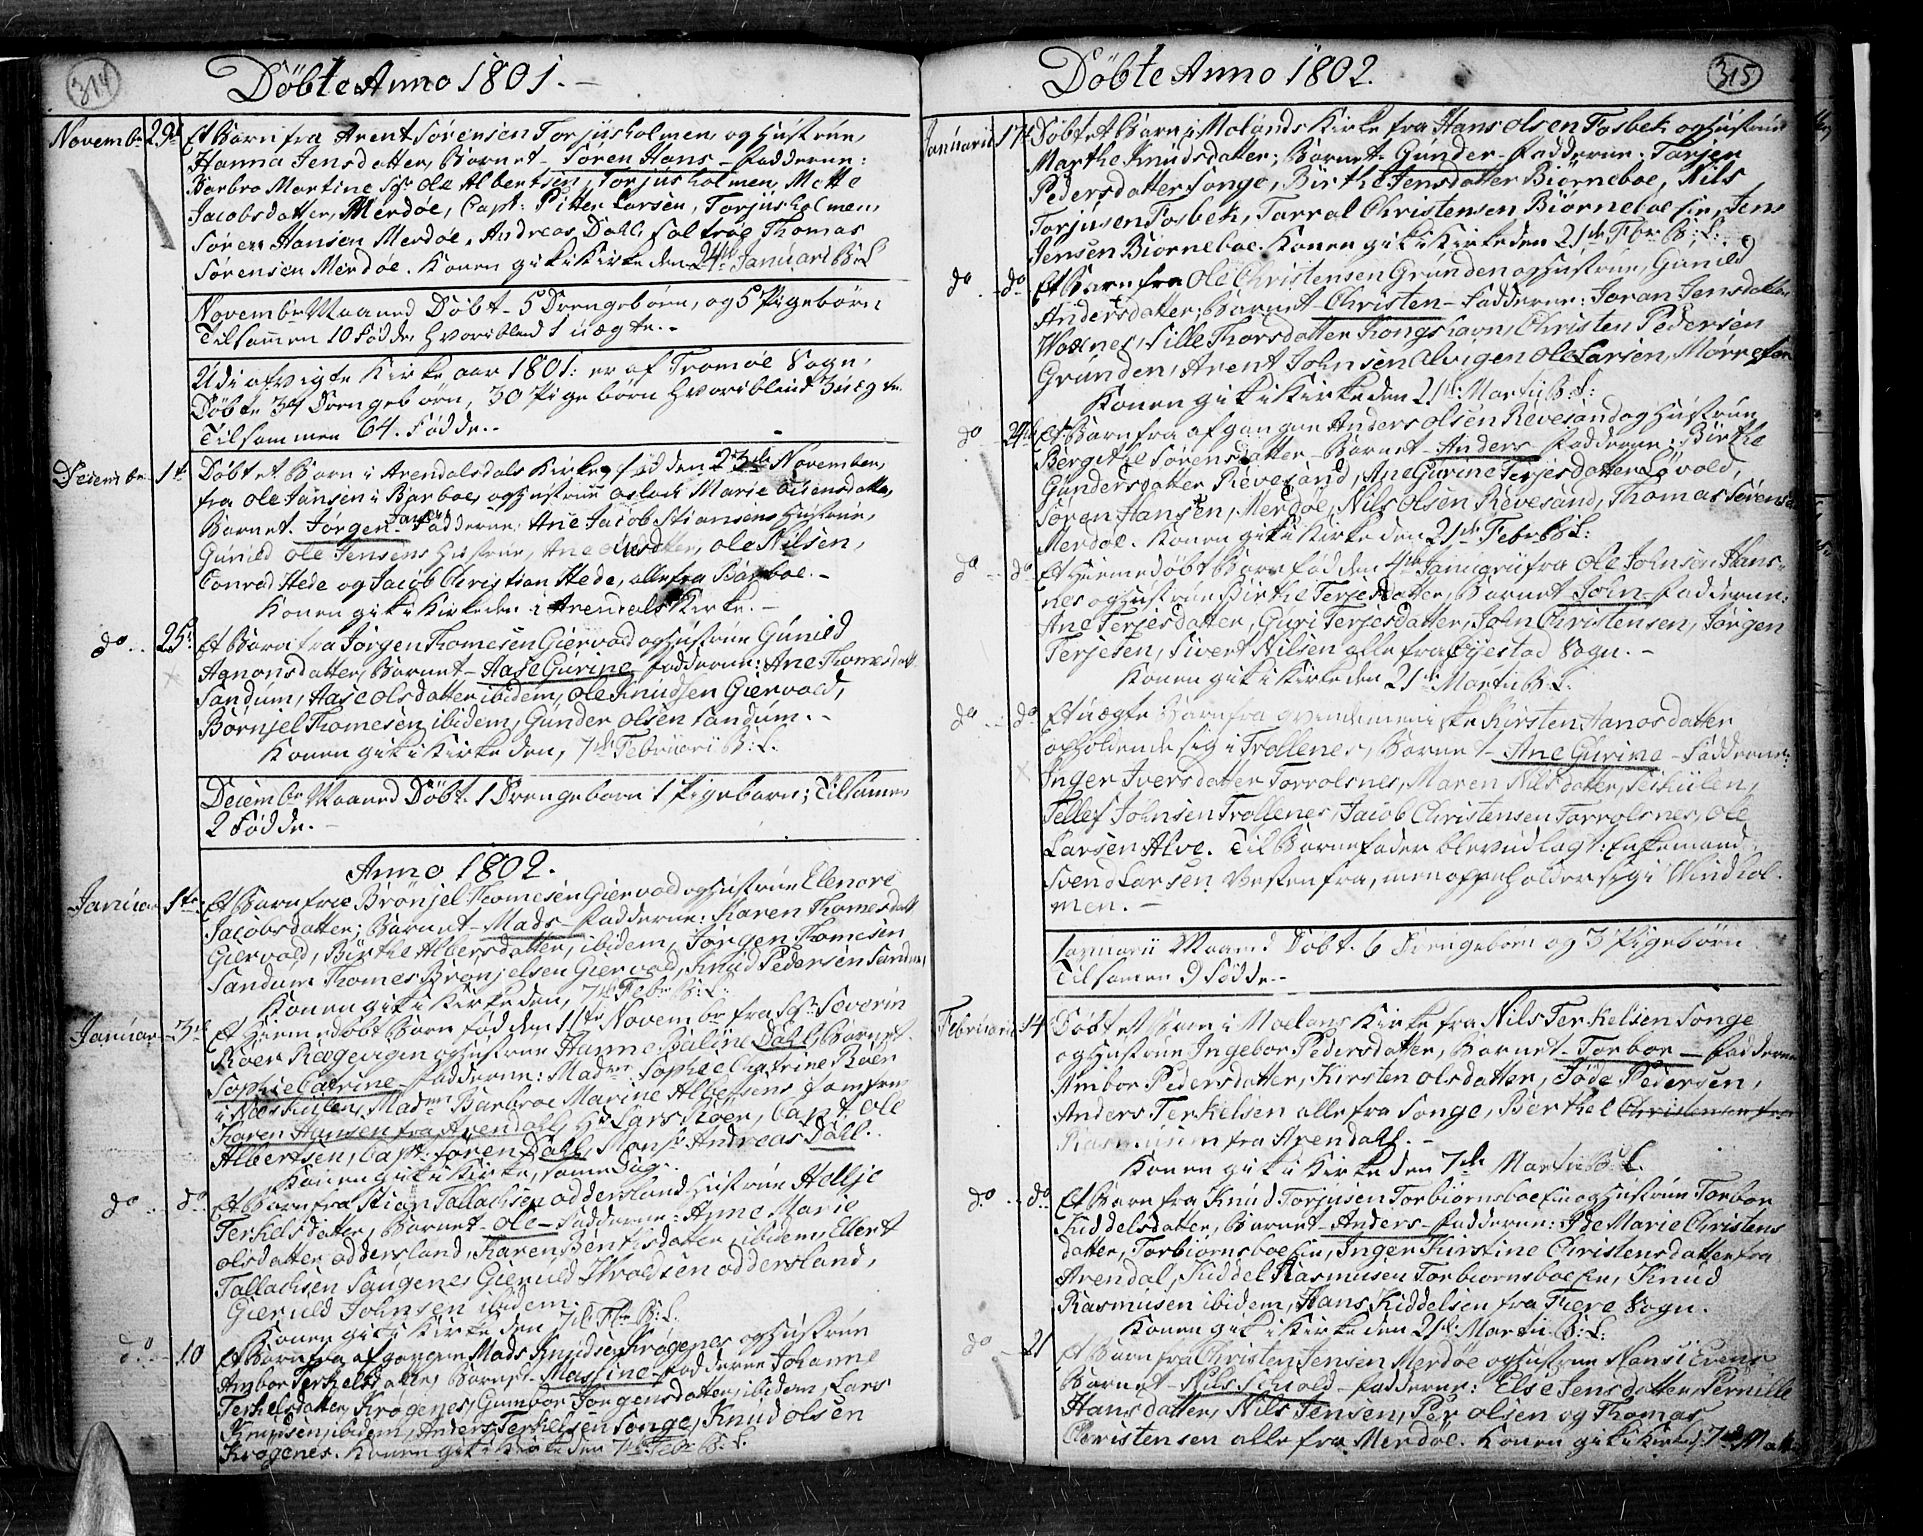 314
Döbte Anno 1801.
Novembr 29d Et Barn fra Arent Sörensen Torjusholmen og Hustrue,
Hanna Jensdatter, Barnet - Sören Hans - Fadderne:
Barbro Martine Sgr Ole Albertsen, Torjusholmen, Mette
Jacobsdatter, Merdöe, Capt: Pitter Larsen, Torjusholmen,
Sören Hansen Merdöe, Andreas Dahl, Thomas
Sörensen Merdöe. Konen gik i Kirke den 24de Januari B:L
Novembr Maaned Döbt - 5 Drengebörn, og 5 Pigebörn
Tilsammen 10 Födde, hvoriblant 1 uægte.-
Udi afvigte Kirke aar 1801: er af Tromöe Sogn,
Döbte 34 Drengebörn, 30 Pigebörn hvoriblant 3 uægte
Tilsammen 64. Födde.-
Decembr 1te Döbt et Barn i Arendals Kirke, föd den 23de November,
fra Ole Jansen i Barboe, og Hustrue Aslach Marie
Barnet. Jörgen Fadderne: Ane Jacob Stiansens Hustrue,
Gunild Ole Jensens Hustrue, Ane Olesdatter, Ole Nilsen,
Conrad Hede og Jacob Christian Hede, alle fra Barboe.-
Konen gik i Kirke den i Arendals Kirke.-
do .. 25: Et Barn fra Jörgen Thomesen Giervold og Hustrue Gunild
Aanonsdatter, Barnet - Aase Gurine, Fadderne: Ane Thomesdatt
Sandum, Aase Olsdatter ibidem, Ole Knudsen Giervold,
Börnjel Thomesen ibidem, Gunder Olsen Sandum.-
Konen gik i Kirke den, 7de Februarii B:L.
Decembr Maaned Döbt. 1 Drengebarn 1 Pigebarn; Tilsamen
2 Födde.-
Anno 1802.
Januar 1te Et Barn fra Brönjel Thomesen Giervold og Hustrue Elenore
Jacobsdatter; Barnet - Mads - Fadderne: Karen Thomesdatt
Giervold, Birthe Albersdatter, ibidem, Jörgen Thomesen
Sandum Thomes Bronjelsen Giervold, Knud Pedersen Sandum,
Konen gik i Kirke den, 7de Febr B:L:
Januar 3de Et Hiemedöbt Barn föd den 11te Novembr fra Sgr Severin
Roer Rægevigen og Hustrue Hanne Paline Dahl, Barnet
Sophie Catrine Fadderne: Madme Sophie Chatrine Roer
i Næskilen, Madme Barbroe Marine Albertsens Jomfrue
Karen Hansen fra Arendahl, Hr Lars Roer, Capt: Ole
Albertsen, Capt: Sören Dahl, Monsr Andreas Dahl.
Konen gik i Kirke, same Dag.
do .. do Et Barn fra Stian Tallachsen Oddersland Hustrue Hellje
Terkelsdatter, Barnet - Ole - Fadderne: Anne Marie
Olsdatter Oddersland, Karen Bentsdatter, ibidem, Ellert
Tallachsen Saugene, Gieruld Haroldsen Oddersland,
Gieruld Johnsen ibidem.
Konen gik i Kirke den 7de Febr B:L.
do - 10 Et Barn fra afgangne Mads Knudsen Krögenes og Hustrue
Anbor Terkelsdatter, Barnet - Massine - Fadderne Johanne
Terkelsdatter, Krögenes, Gunnbor Jörgensdatter, ibidem, Lars
Knudsen, ibidem, Anders Terkelsen Songe, Knud Olsen
Krögenes. Konen gik i Kirke den 7de Febr B:L.
315
Döbte Anno 1802.
Januarii 17d Döbt et Barn i Molands Kirke fra Hans Olsen Fosbek og Hustrue
Marthe Knudsdatter; Barnet - Gunder - Fadderne: Torjen
Pedersdatter Songe, Birthe Jensdatter Biörneboe, Nils
Torjusen Fosbek, Torral Christensen Biörneboe Eie, Jens
Jensen Biorneboe. Konen gik i Kirke den 21de Febr B:L:
do - do Et Barn fra Ole Christensen Grunden og Hustrue, Gunild
Andersdatter; Barnet - Christen - Fadderne: Joran Jensdatter
Woxnes, Sille Thorsdatter Kongshavn, Christen Pedersen
Grunden, Arent Johnsen Alvigen Ole Larsen, Mörrefær
Konen gik i Kirke den 21de Martii B:L:
do - 24de Et Barn fra afgangen Anders Olsen Revesand og Hustrue
Bergithe Sörensdatter - Barnet - Anders - Fadderne: Birthe
Gundersdatter Revesand, Ane Gurine Terjesdatter Lövold,
Sören Hansen, Merdöe, Nils Olsen Revesand, Thomas Sörensen
Merdöe. Konen gik i Kirke den 21de Febr B:L:
do - do Et Hiemedöbt Barn föd den 4de Januarii fra Ole Johnsen Hans-
nes og Hustrue Birthe Terjesdatter, Barnet John - Fadderne:
Ane Terjesdatter, Guri Terjesdatter, John Christensen, Jörgen
Terjesen, Sivert Nilsen alle fra Öyestad Sogn.-
Konen gik i Kirke den 21de Martii B:L:
do - do Et uægte Barn fra Qvindemeniske Kirsten Aanosdatter
opholdende sig i Trollenes, Barnet - Ane Gurine - Fadderne:
Inger Iversdatter Torrolsnes, Maren Nilsdatter,
Tellef Johnsen Trollenes, Jacob Christensen Torrolsnes, Ole
Larsen Alve. Til Barnefader blev udlagt: Enkemand
Svend Larsen Vesten fra, men oppeholder sig i Windhol-
men.-
Januarii Maaned Döbt. 6 Drengeborn og 3 Pigebörn
Tilsamen 9 Födde.-
Februarii 14 Döbt et Barn i Molans Kirke fra Nils Terkelsen Songe
og Hustrue Ingebor Pedersdatter, Barnet - Torbor - Fadderne
Anbor Pedersdatter, Kirsten Olsdatter, Söde Pedersen,
Anders Terkelsen alle fra Songe, Berthel Christensen fra
Rasmusen fra Arendahl.-
Konen gik i Kirke den 7de Martii B:L.
do .. do Et Barn fra Knud Torjusen Torbiörnsboe Eie og Hustrue Torbor
Kiddelsdatter, Barnet - Anders - Fadderne: Ide Marie Christens
datter, Torbiornsboe Eie, Inger Kirstine Christensdatter fra
Arendal, Kiddel Rasmusen Torbiornsboe Eie, Knud
Rasmusen ibidem, Hans Kiddelsen fra Fiere Sogn.
Konen gik i Kirke den 21de Martii B:L:
do - 21 Et Barn fra Christen Jensen Merdöe og Hustrue
Barnet - Nils - Fadderne: Else Jensdatter, Pernille
Hansdatter, Nils Jensen, Per Olsen og Thomas
Christensen alle fra Merdöe. Konen gik i Kirke d: 7de Martii